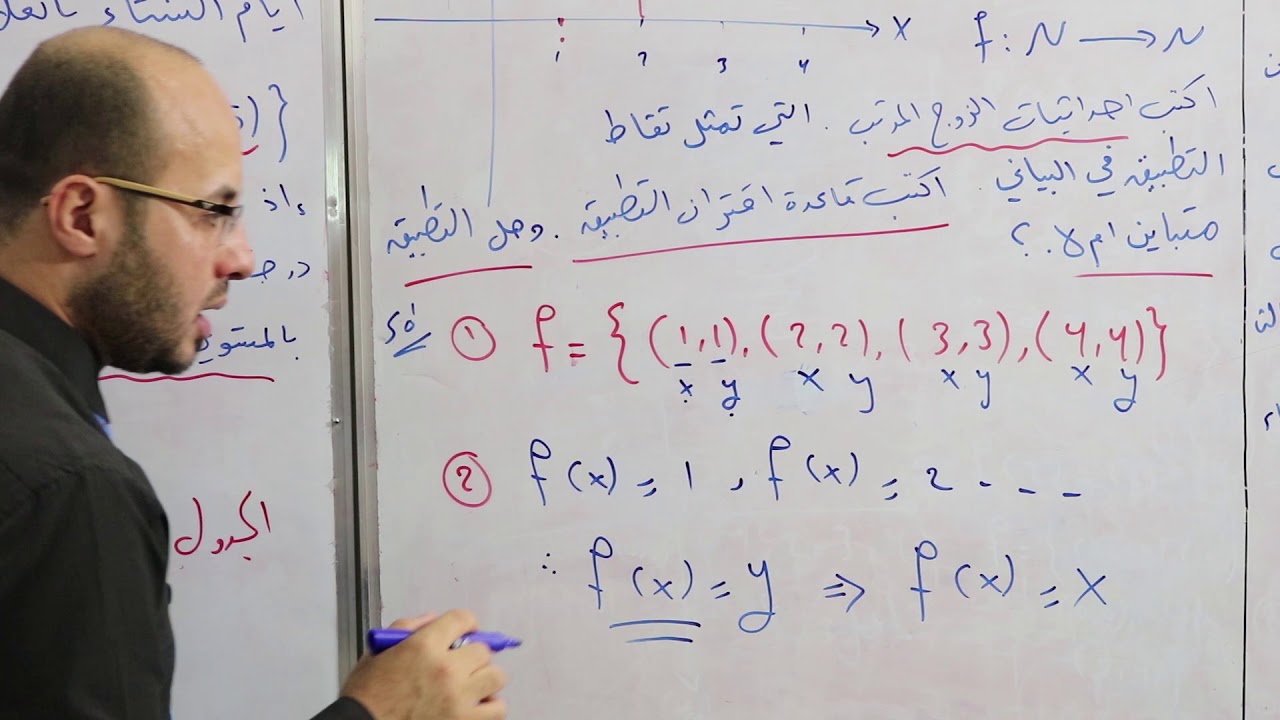 أيام الشتاء
{(
درجـ
بالمستوي
الجدول
X
1 2 3 4
f : N ⟶ N
اكتب احداثيات الزوج المرتب . التي تمثل نقاط
التطبيق في البياني . اكتب قاعدة اقتران التطبيق . وهل التطبيق
متباين ام لا . ؟
① f = { (1,1), (2,2), (3,3), (4,4)}
x y x y x y x y
② f(x) = 1 , f(x) = 2 - - -
∴ f(x) = y ⇒ f(x) = x